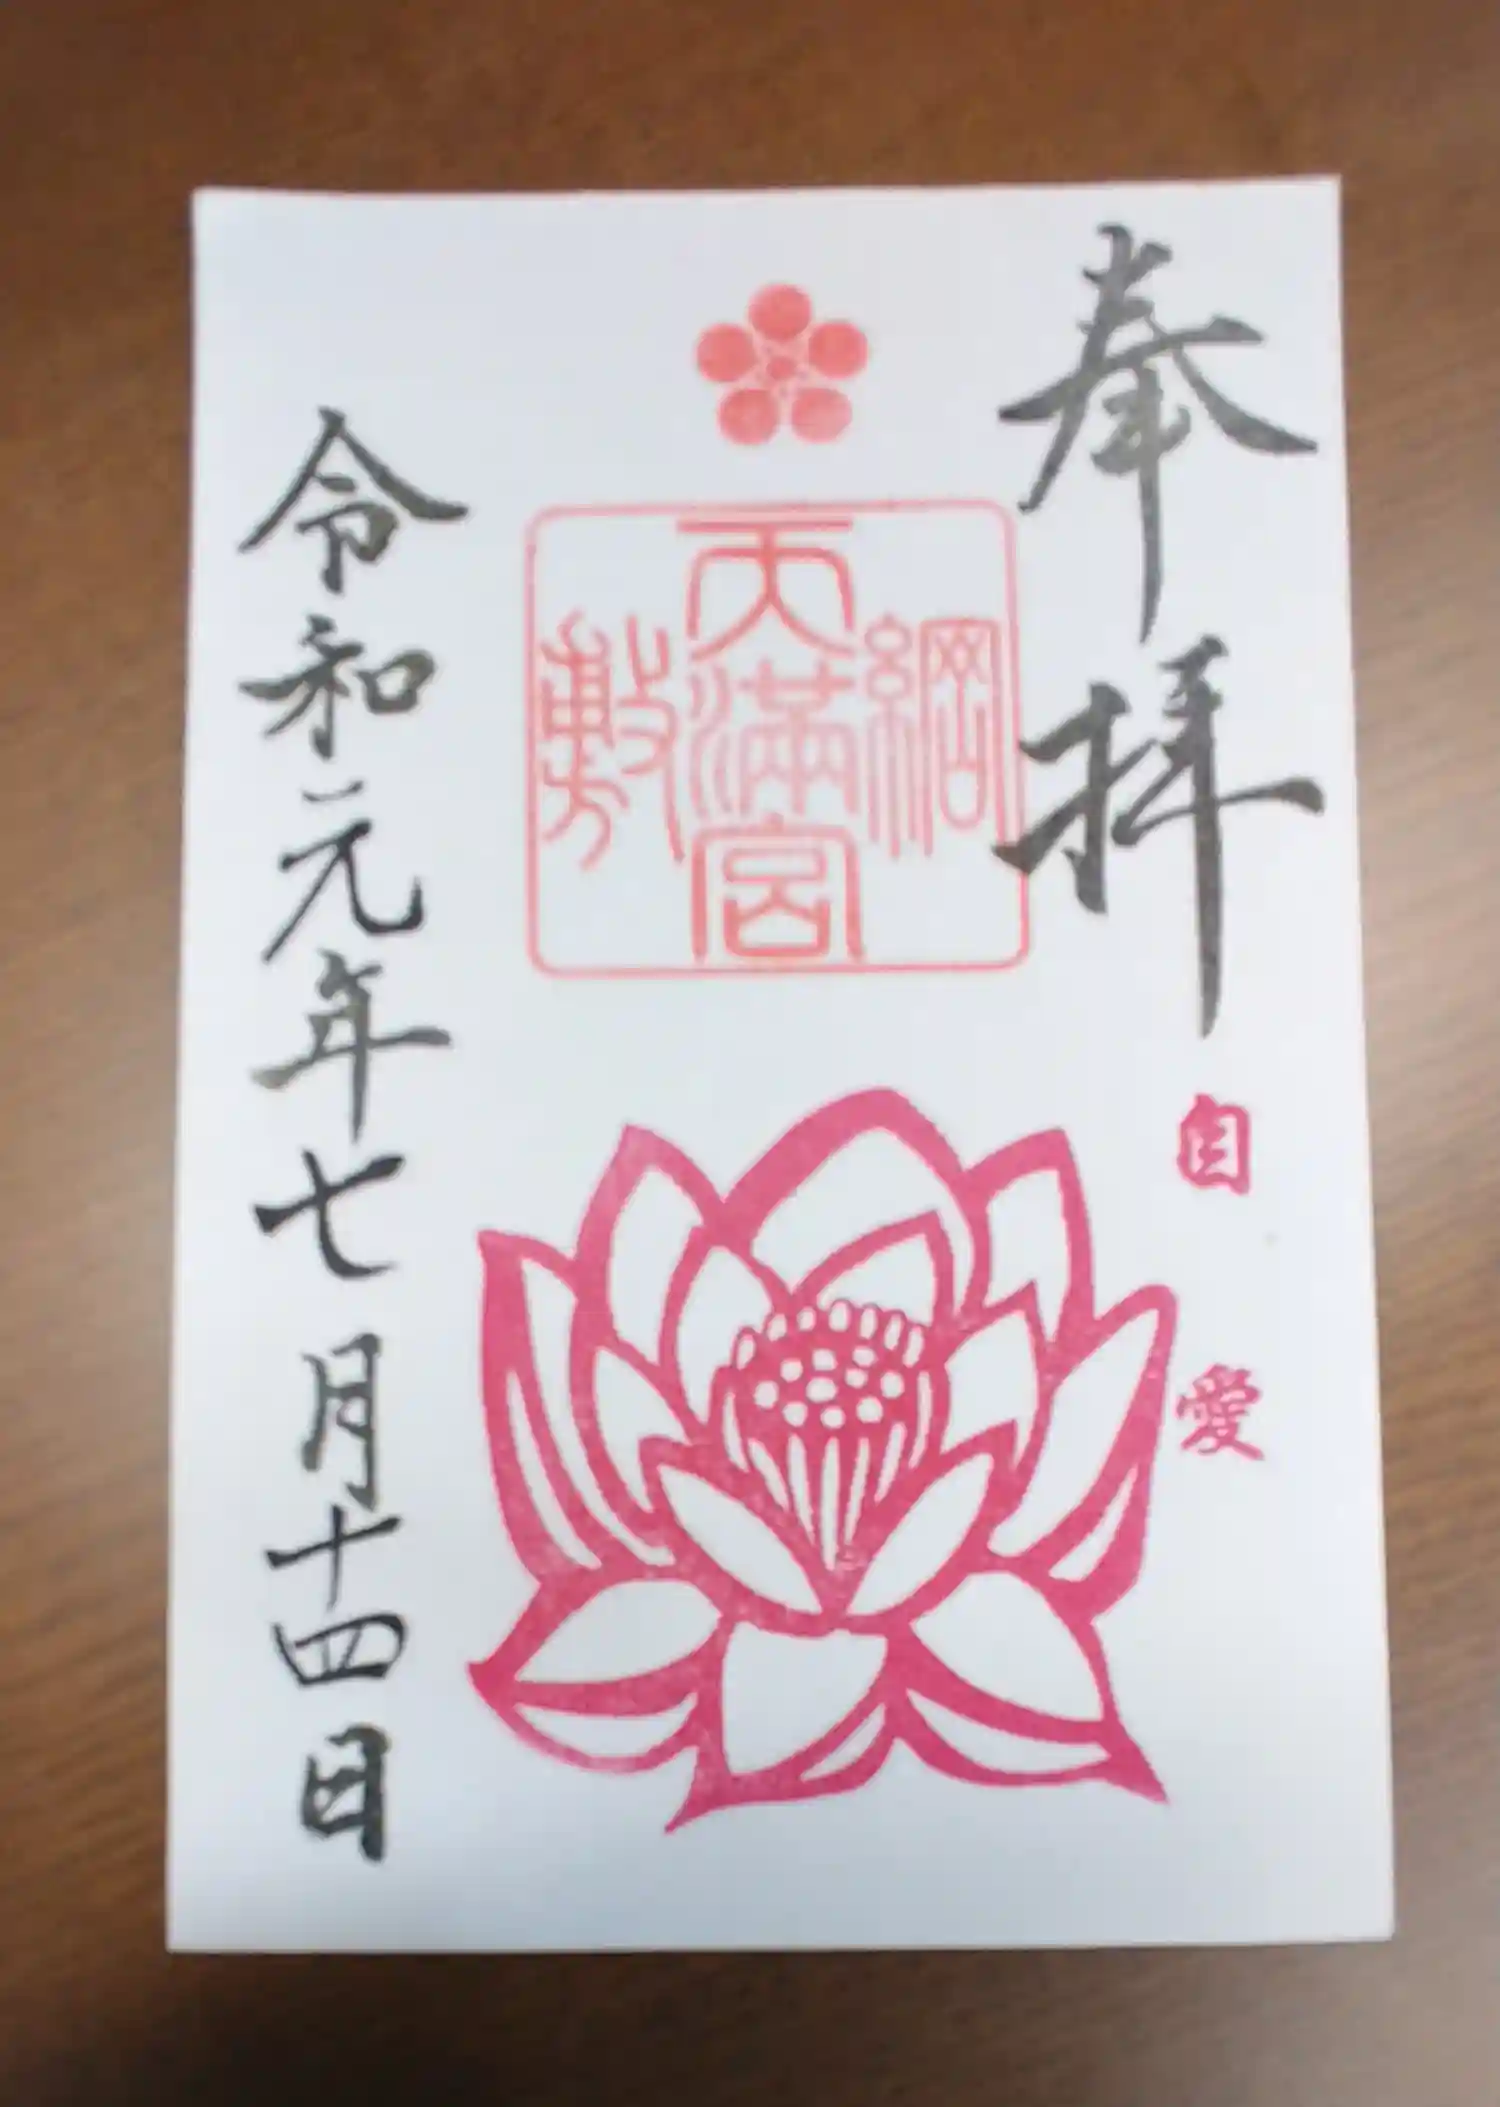 奉拝
自愛
綱敷
天満宮
令和元年七月十四日